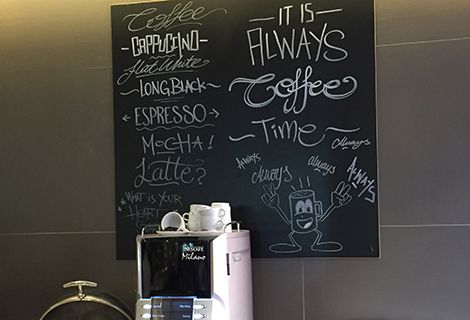 Coffee
CAPPUCINO
Flat White
LONG BLACK
ESPRESSO
MOCHA!
Latte?
WHAT IS YOUR
HEART
IT IS
ALWAYS
Coffee
TIME
Always
ALWAYS
Always
always
ALWAYS
NESCAFÉ
Milano